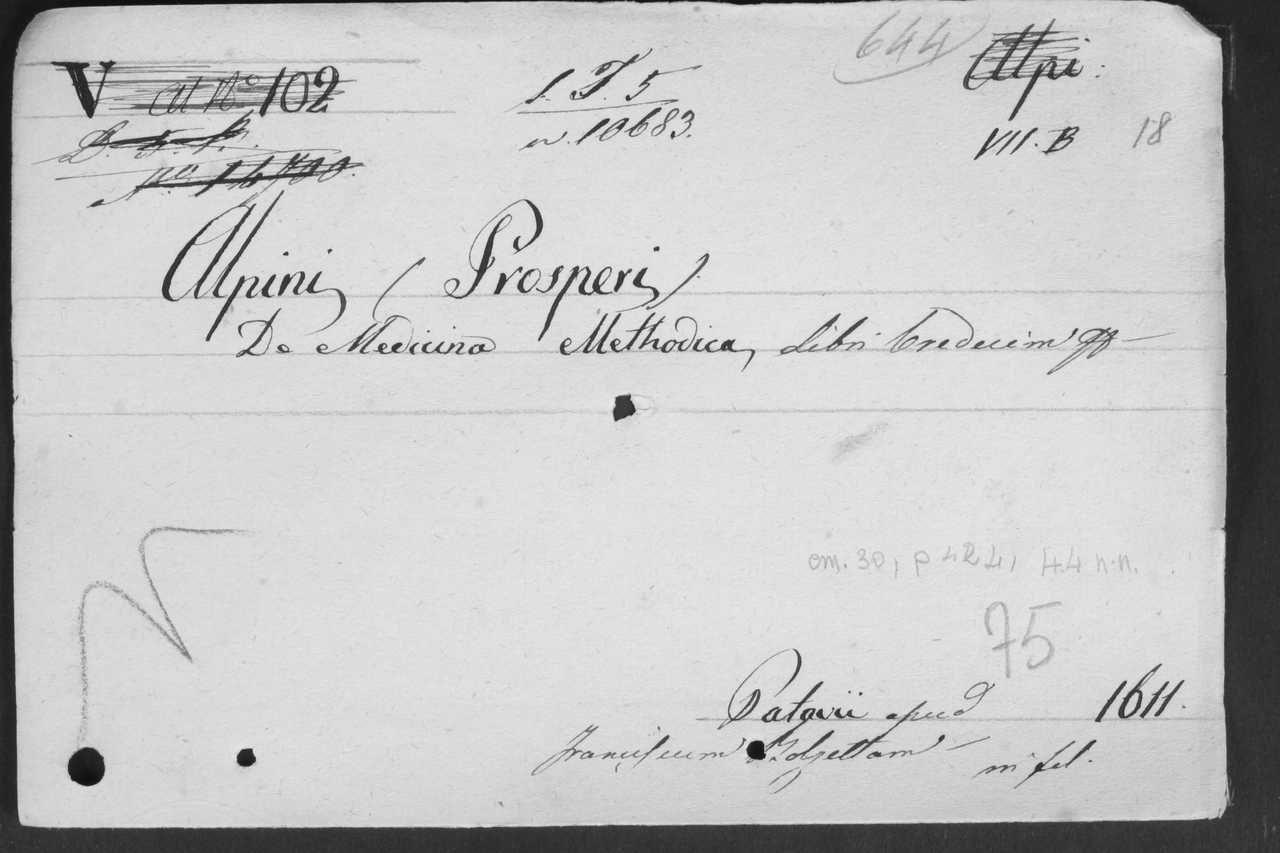 644
V at N.o 102
1. T. 5
Alpi:
n. 10683.
VII. B 18
N.o 14700.
Alpini, (Prosperi)
De Medicina Methodica, Libri tredecim
cm. 30, p 424, 44 n.n.
75
Patavii apud 1611.
Franciscum Bolzettam
in fol.